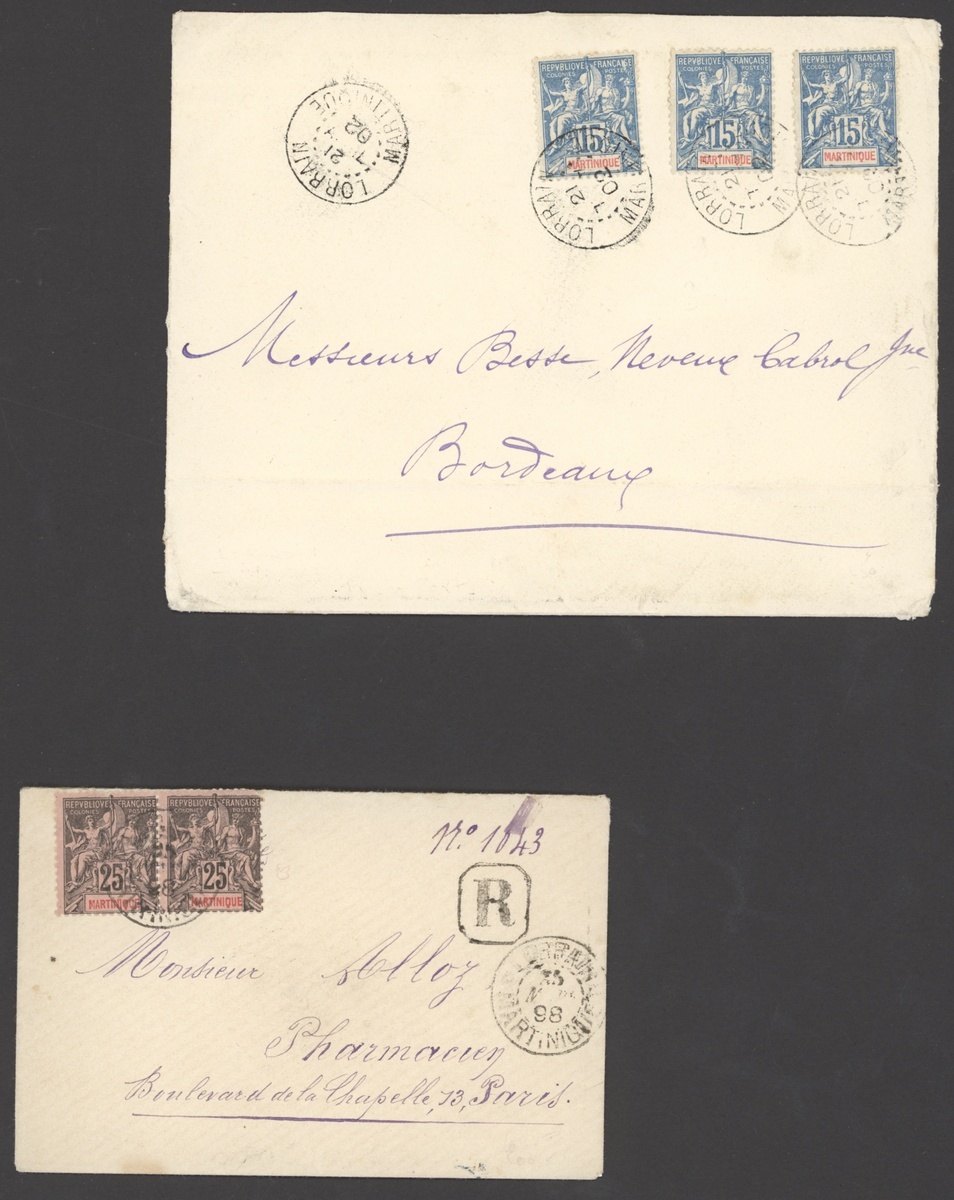 LORRAIN
21
7
02
MARTINIQUE
REPVBLIQVE FRANÇAISE REPVBLIQVE FRANÇAISE REPVBLIQVE FRANÇAISE
COLONIES POSTES COLONIES POSTES COLONIES POSTES
15 15 15
MARTINIQUE MARTINIQUE MARTINIQUE
LORRAIN LORRA LORRA
21 21 21
7 7 7
MAR MA MART
Messieurs Besse, Neveux Cabrol Jne
Bordeaux
REPVBLIQVE FRANÇAISE REPVBLIQVE FRANÇAISE
COLONIES POSTES COLONIES POSTES
25 25
MARTINIQUE MARTINIQUE
No. 1043
R
LORRAIN
98
MARTINIQUE
Monsieur Alloy
Pharmacien
Boulevard de la Chapelle, 13, Paris.